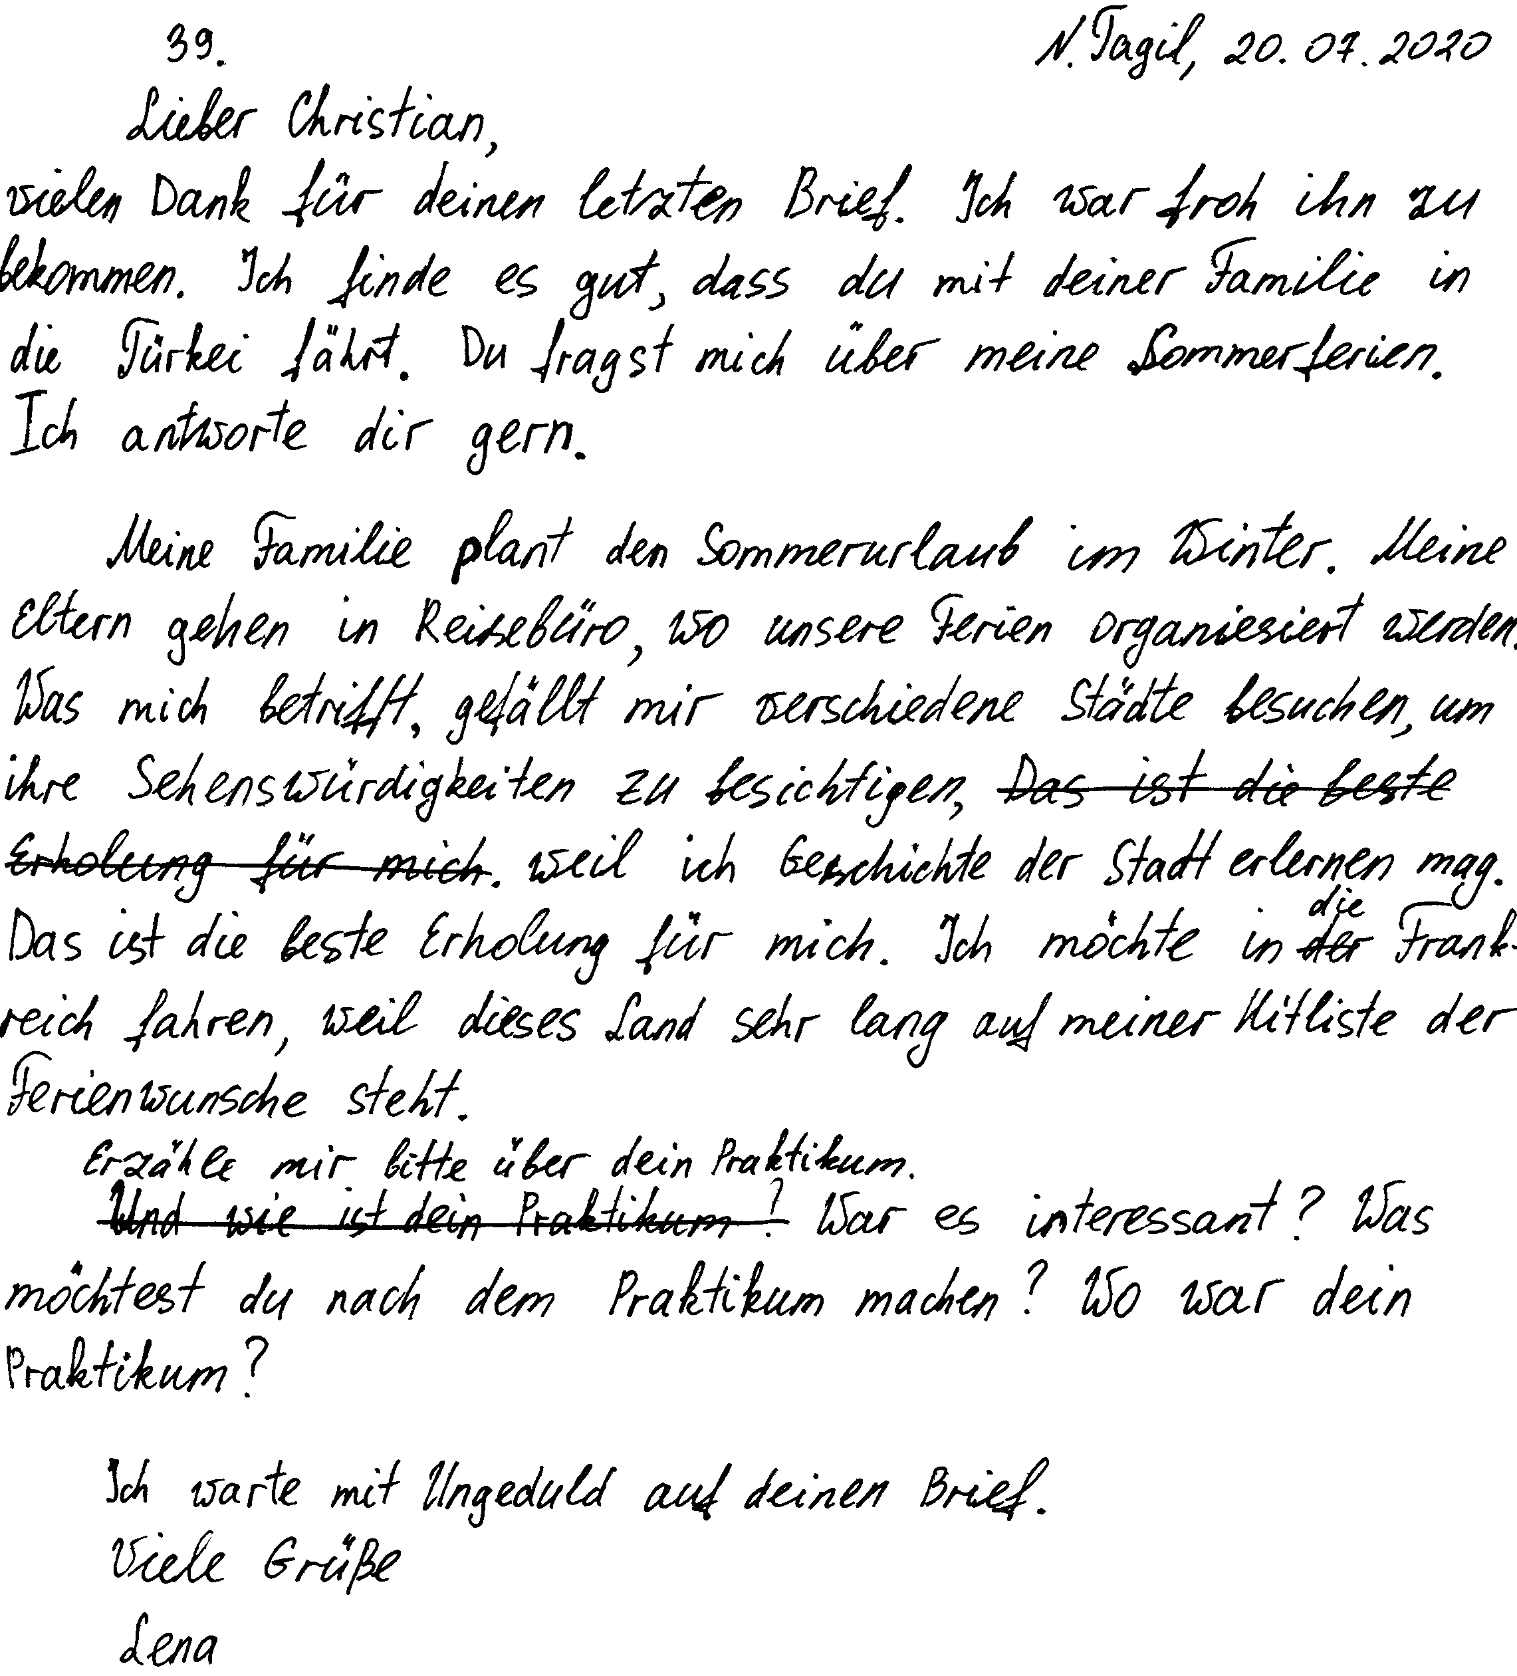 39. N. Tagil, 20.07.2020
Lieber Christian,
vielen Dank für deinen letzten Brief. Ich war froh ihn zu
bekommen. Ich finde es gut, dass du mit deiner Familie in
die Türkei fährt. Du fragst mich über meine Sommerferien.
Ich antworte dir gern.
Meine Familie plant den Sommerurlaub im Winter. Meine
Eltern gehen in Reisebüro, wo unsere Ferien organiesiert werden.
Was mich betrifft, gefällt mir verschiedene Städte besuchen, um
ihre Sehenswürdigkeiten zu besichtigen, Das ist die beste
Erholung für mich. weil ich Geschichte der Stadt erlernen mag.
die
Das ist die beste Erholung für mich. Ich möchte in der Frank-
reich fahren, weil dieses Land sehr lang auf meiner Hitliste der
Ferienwunsche steht.
Erzähle mir bitte über dein Praktikum.
Und wie ist dein Praktikum? War es interessant? Was
möchtest du nach dem Praktikum machen? Wo war dein
Praktikum?
Ich warte mit Ungeduld auf deinen Brief.
Viele Grüße
Lena